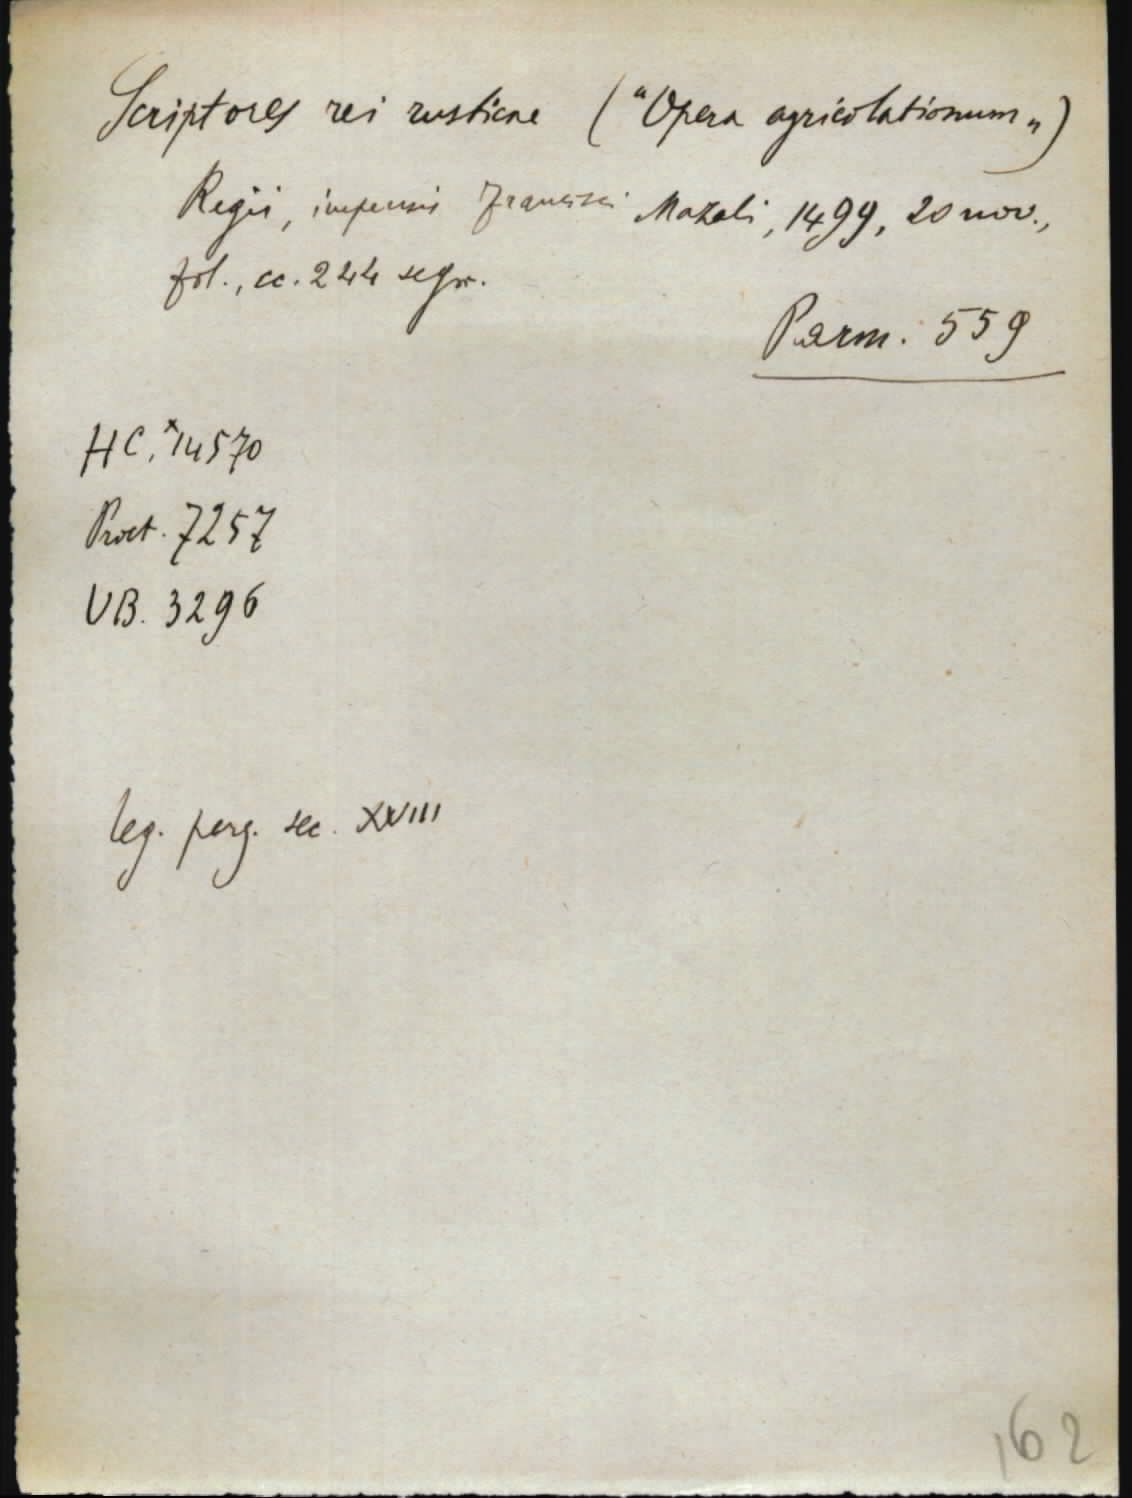 Scriptores rei rusticae ("Opera agricolationum„)
Regii, impensis Francisci Mazali, 1499, 20 nov.,
fol., cc. 244 segn.
Parm. 559
HC. *14570
Proct. 7257
VB. 3296
leg. perg. sec. XVIII
162